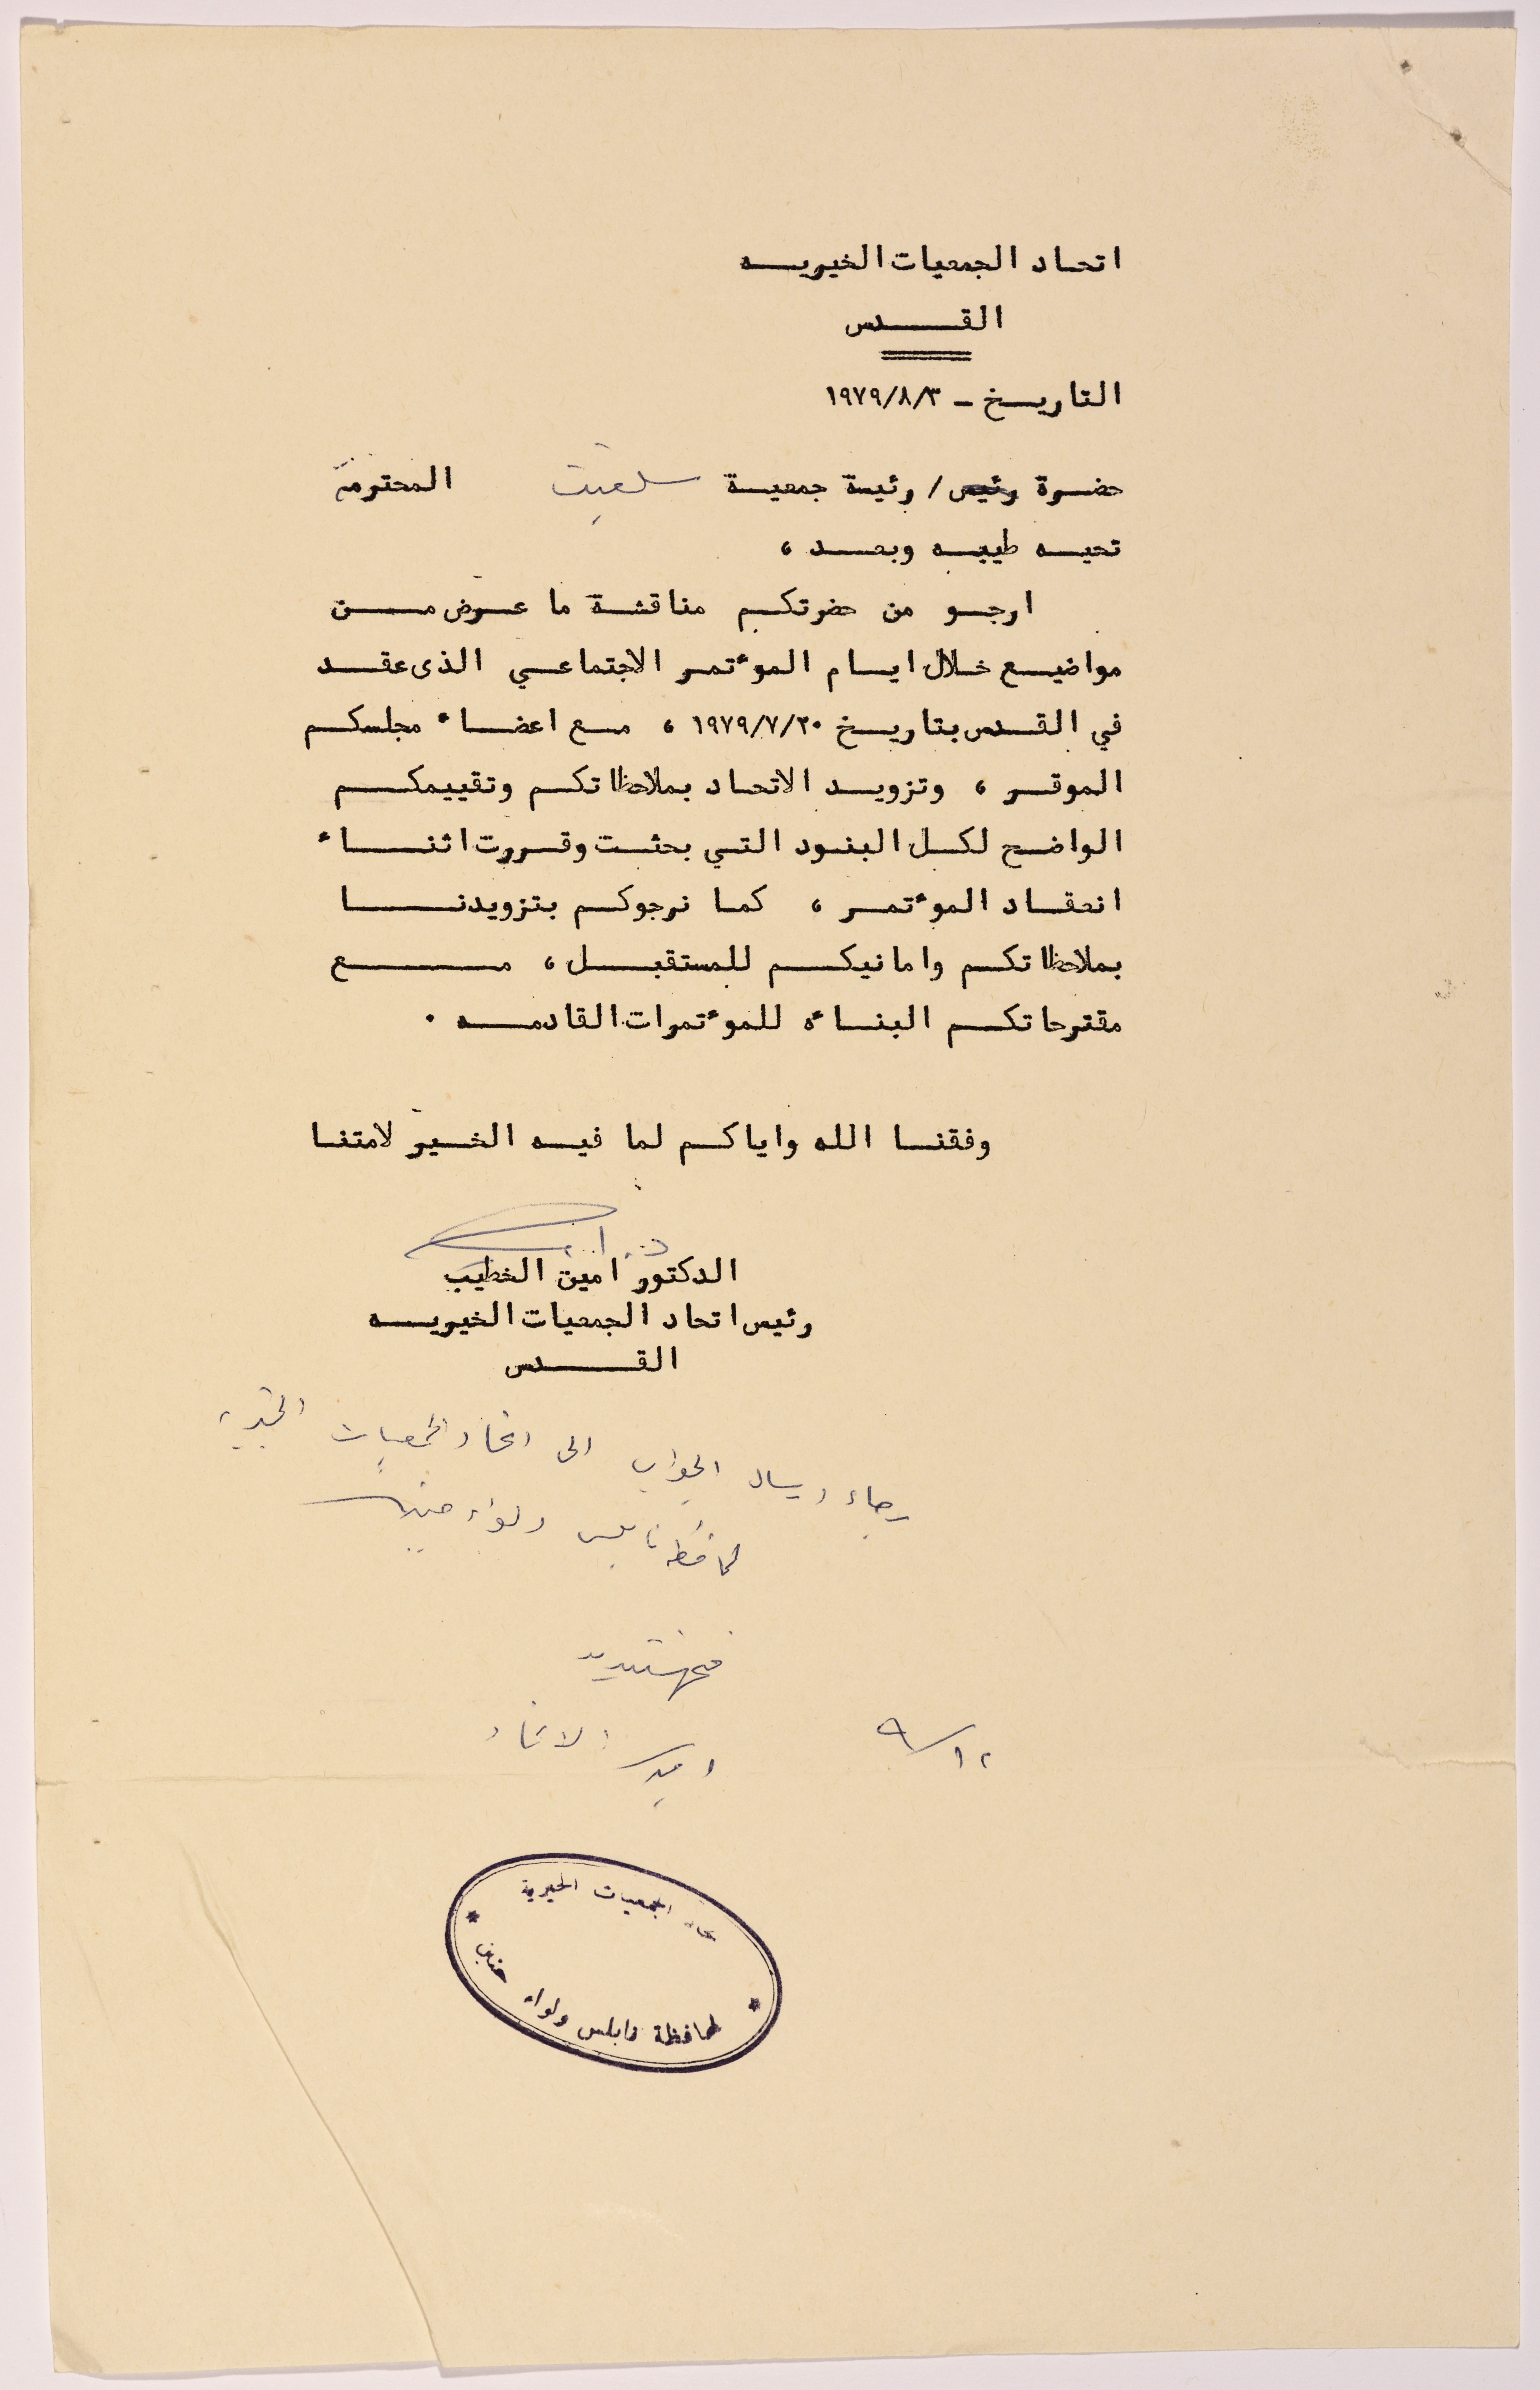 اتحاد الجمعيات الخيريه
القدس
التاريخ - ١٩٧٩/٨/٣
حضرة رئيس / رئيسة جمعية سلفيت المحترمة
تحيه طيبه وبعد ،
ارجو من حضرتكم مناقشة ما عرض من
مواضيع خلال ايام الموءتمر الاجتماعي الذى عقد
في القدس بتاريخ ١٩٧٩/٧/٢٠ ، مع اعضاء مجلسكم
الموقر ، وتزويد الاتحاد بملاحظاتكم وتقييمكم
الواضح لكل البنود التي بحثت وقررت اثناء
انعقاد الموءتمر ، كما نرجوكم بتزويدنا
بملاحظاتكم وامانيكم للمستقبل ، مع
مقترحاتكم البناءه للموءتمرات القادمه .
وفقنا الله واياكم لما فيه الخير لامتنا
الدكتور امين الخطيب
رئيس اتحاد الجمعيات الخيريه
القدس
رجاء ارسال الجواب الى اتحاد الجمعيات الخيرية
لمحافظة نابلس ولواء جنين
الاتحاد
٩/١٢
اتحاد الجمعيات الخيرية
لمحافظة نابلس ولواء جنين